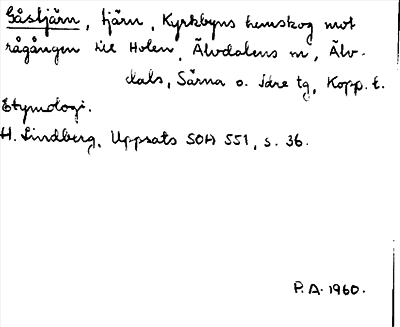 Gåstjärn, tjärn, Kyrkbyns hemskog mot
rågången till Holen, Älvdalens sn, Älv-
dals, Särna o. Idre tg, Kopp. l.
Etymologi.
H. Lindberg, Uppsats SOH 551, s. 36.
P.A. 1960.